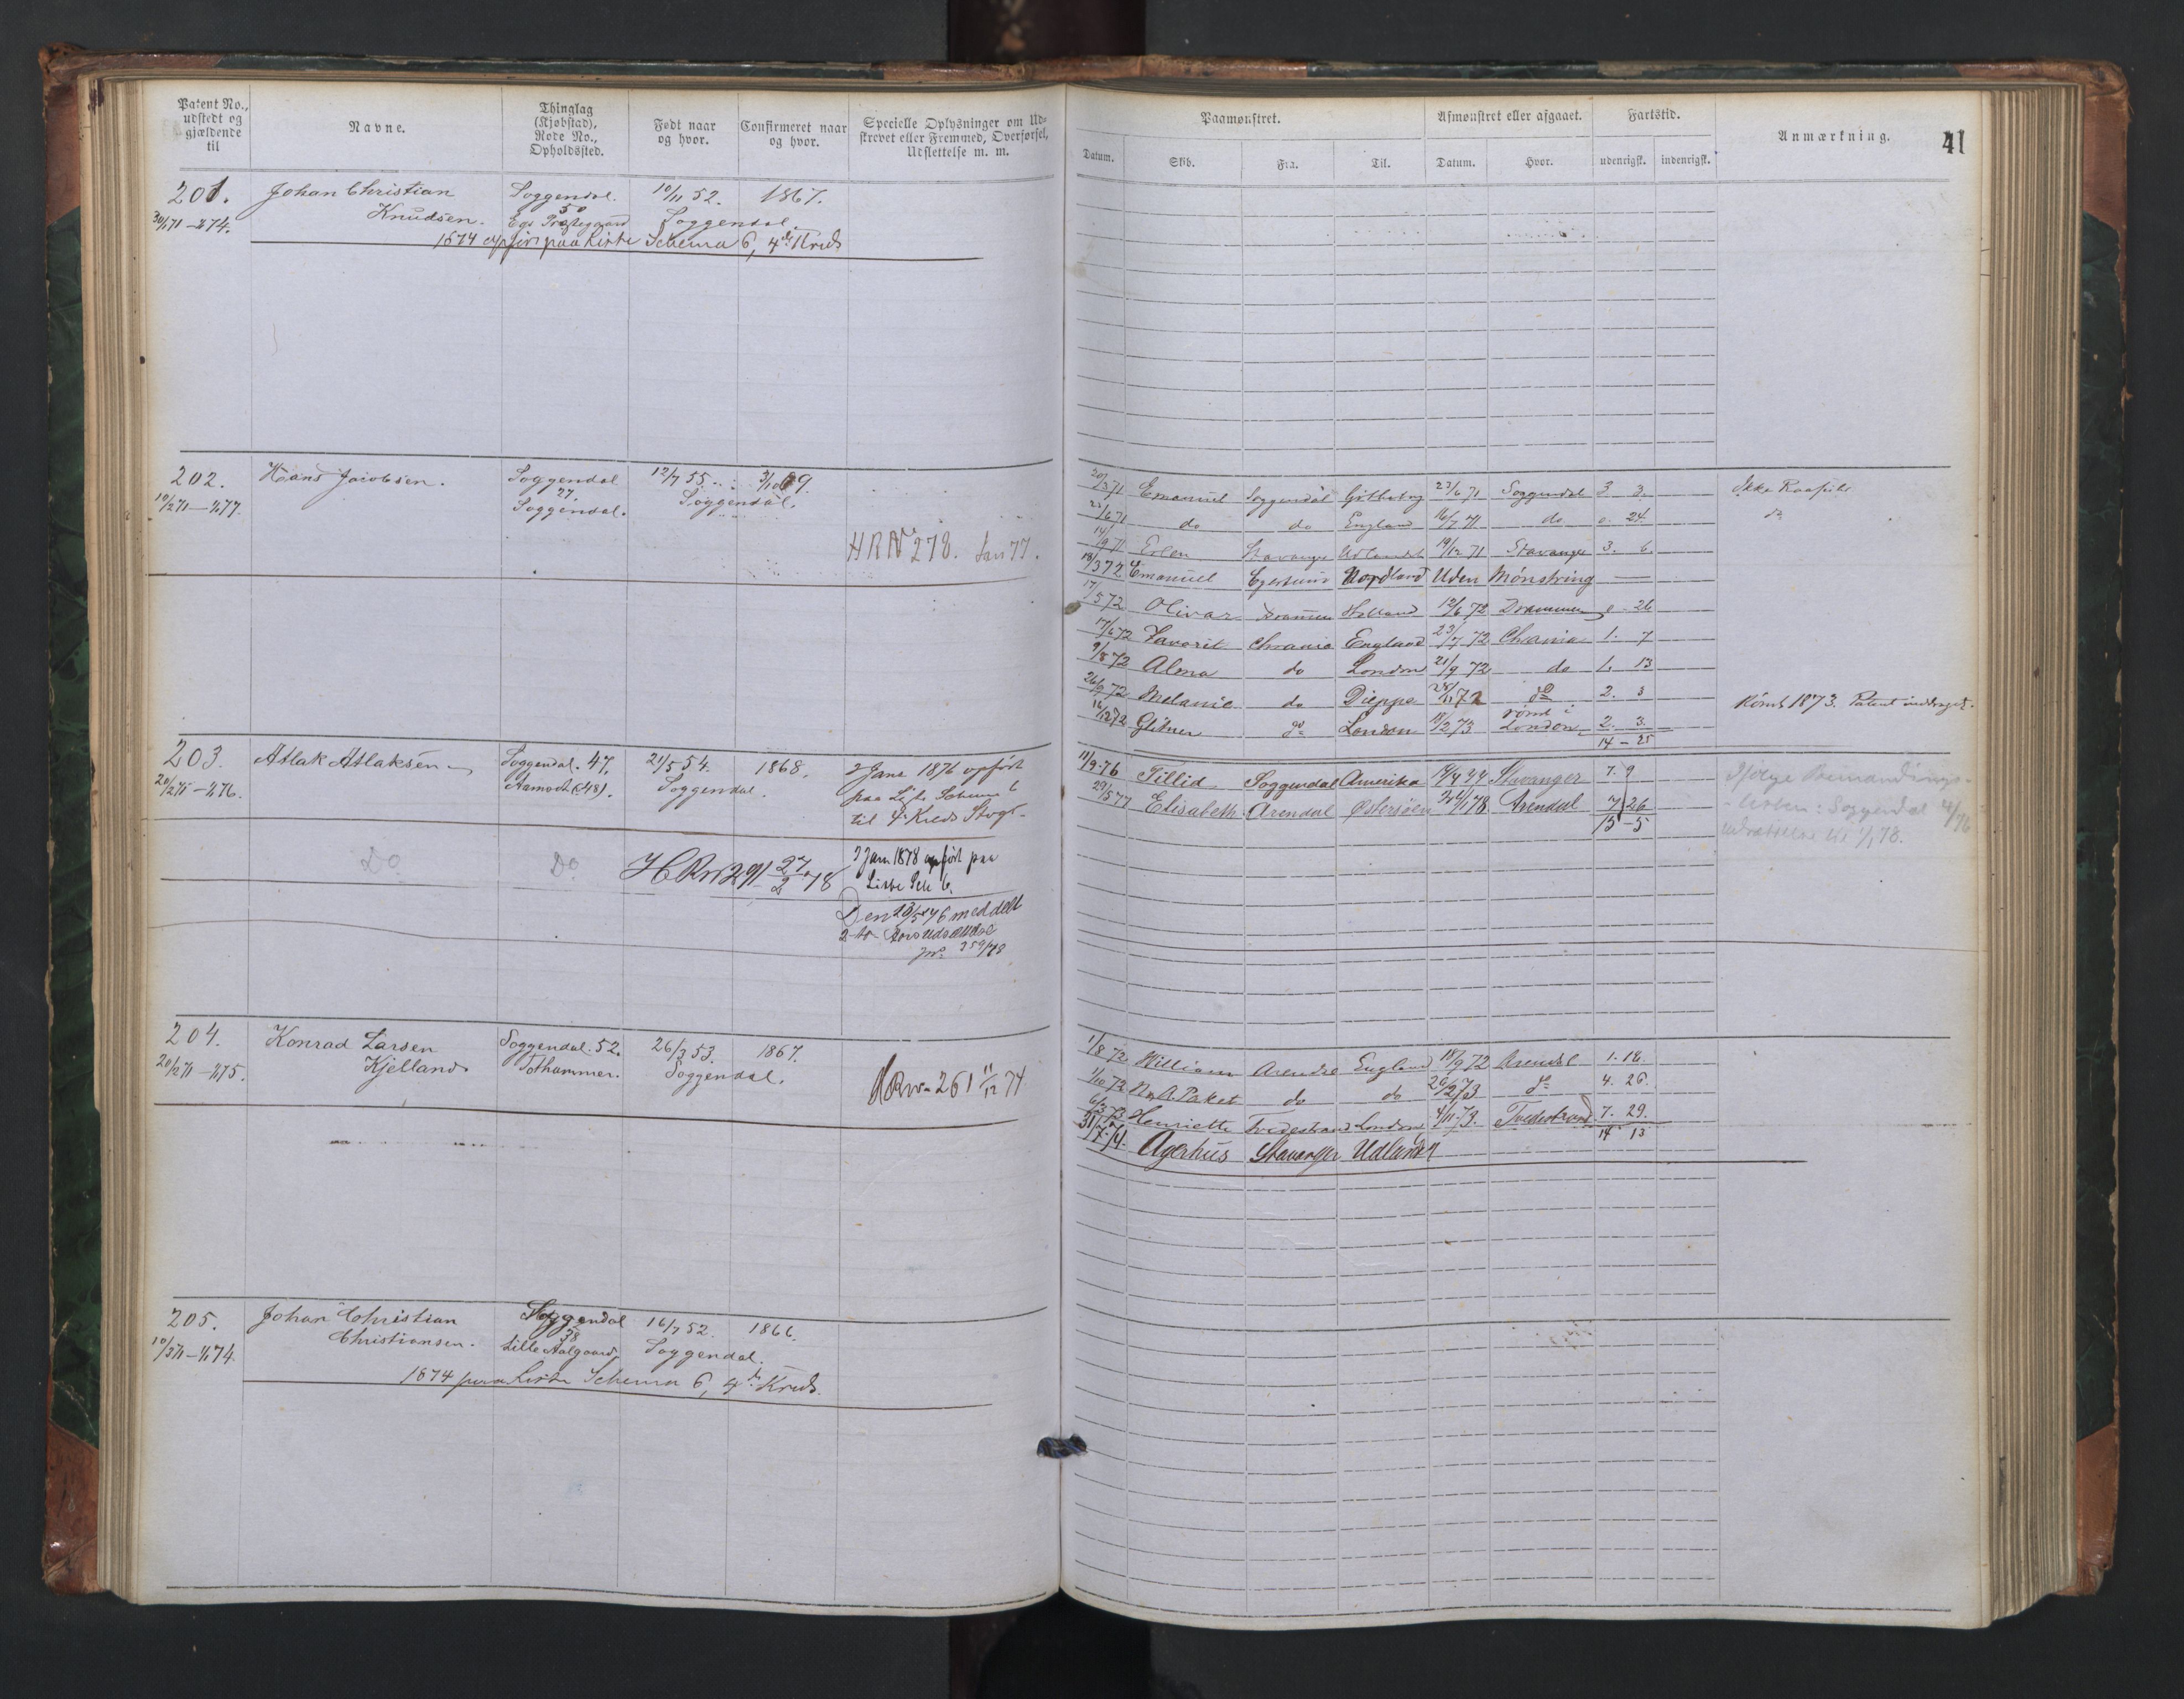 Patent No.,
udstedt og
gjældende
til
Navne.
Thinglag
(Kjøbstad),
Rode No.,
Opholdssted.
Født naar
og hvor.
Confirmeret naar
og hvor.
Specielle Oplysninger om Ud-
skrevet eller Fremmed, Overførsel,
Udslettelse m. m.
201.
Johan Christian
Knudsen.
Soggendal.
50
10/11 52.
1867.
Soggendal.
1874 opført paa Liste Schema 6, 4de Kreds
202.
10/2 71 – 1/1 77.
Hans Jacobsen.
Soggendal
27.
Soggendal.
12/7 55.
Soggendal.
HRN 278. Jan 77.
203.
20/2 71 – 1/1 76.
Atlak Atlaksen
Soggendal. 47.
Aamodt (48).
21/5 54.
1868.
Soggendal.
I Jan 1876 opført
paa Liste Schema 6
til 4de Kreds
Do
Do
HRN 291 27/2 78
I Jan 1878 opført paa
Liste Sch 6.
meddelt
204.
20/2 71 – 1/1 75.
Konrad Larsen
Kjelland
Soggendal. 52.
Tothammer.
26/3 53.
1867.
Soggendal.
261 11/12 74
205.
10/3 71 – 1/1 74.
Johan Christian
Christiansen.
Soggendal
38
Lille Aalgaard
16/7 52.
1866.
Soggendal.
1874 paa Liste Schema 6, 4de Kreds.
Paamønstret.
Afmønstret eller afgaaet.
Fartstid.
Anmærkning.
41
Datum.
Skib.
Fra.
Til.
Datum.
Hvor.
udenrigsk.
indenrigsk.
Emanuel Soggendal 23/6 71 Soggendal 3 3.
23/6 71 do do England 16/7 71 do 0. 24.
Ikke
do
14/9 71 Stavanger Udlandet 19/12 71 Stavanger 3. 6.
18/3 72 Emanuel Egersund Nordland Uden Mønstring
17/5 72 Olivar Drammen Holland 12/6 72 Drammen 0 26
17/6 72 Favorit Chrania England 23/7 72 Chrania 1. 7
9/8 72 Alma do London 21/9 72 do 1. 13
26/9 72 Melanie do Dieppe do 2. 3
16/12 72 Gløtner do London 18/2 73 rømt i London 2. 3.
14 – 25
Rømt 1873. Patent inddraget.
11/9 76 Tillid Soggendal Amerika Stavanger 7. 9
29/5 77 Elisabeth Arendal Østersøen Arendal 7 26
15 – 5
Ifølge Bemandings-
listen: Soggendal 4/76
1/8 72 William Arendal England 18/9 72 Arendal 1. 18.
1/10 72 Paket do do 26/2 73 do 4. 26.
6/3 73 Henriette Tvedestrand London 4/11 73. Tvedestrand 7. 29.
14 13
31/7 74. Agerhus Stavanger Udlandet